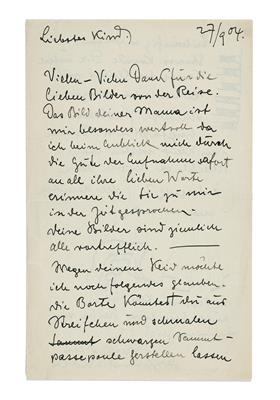 27/9 04.
Liebster Kind!)
Vielen – Vielen Dank für die
lieben Bilder von der Reise.
Das Bild deiner Mama ist
mir besonders wertvoll da
ich beim Anblick mich durch
die Güte der Aufnahme sofort
an all ihre lieben Worte
erinnere die sie zu mir
in der Zeit gesprochen.
Deine Bilder sind ziemlich
alle vortrefflich. —
Wegen deinem Kleid möchte
ich noch folgendes glauben.
die Borte könntest du aus
Streifchen und schmalen
schwarzen Sammt-
passepoule herstellen lassen